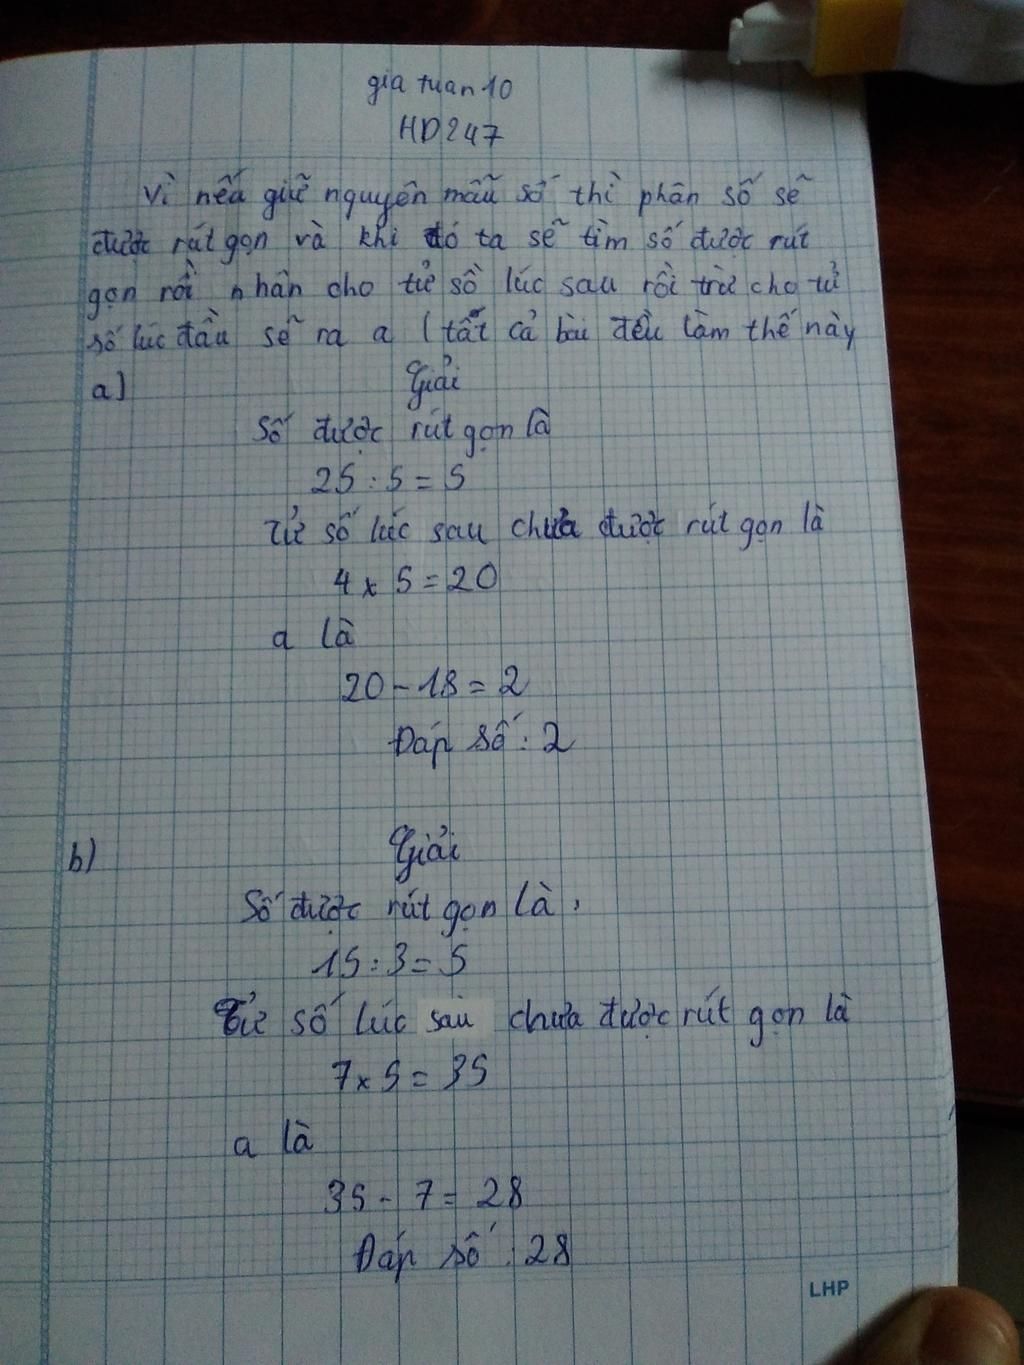 gia tuan 10
HD247
Vì nếu giữ nguyên mẫu số thì phân số sẽ
được rút gọn và khi đó ta sẽ tìm số được rút
gọn rồi nhân cho tử số lúc sau rồi trừ cho tử
số lúc đầu sẽ ra a (tất cả bài đều làm thế này
a) Giải
Số được rút gọn là
25 : 5 = 5
Tử số lúc sau chưa được rút gọn là
4 x 5 = 20
a là
20 - 18 = 2
Đáp số : 2
b) Giải
Số được rút gọn là :
15 : 3 = 5
Tử số lúc sau chưa được rút gọn là
7 x 5 = 35
a là
35 - 7 = 28
Đáp số : 28
LHP